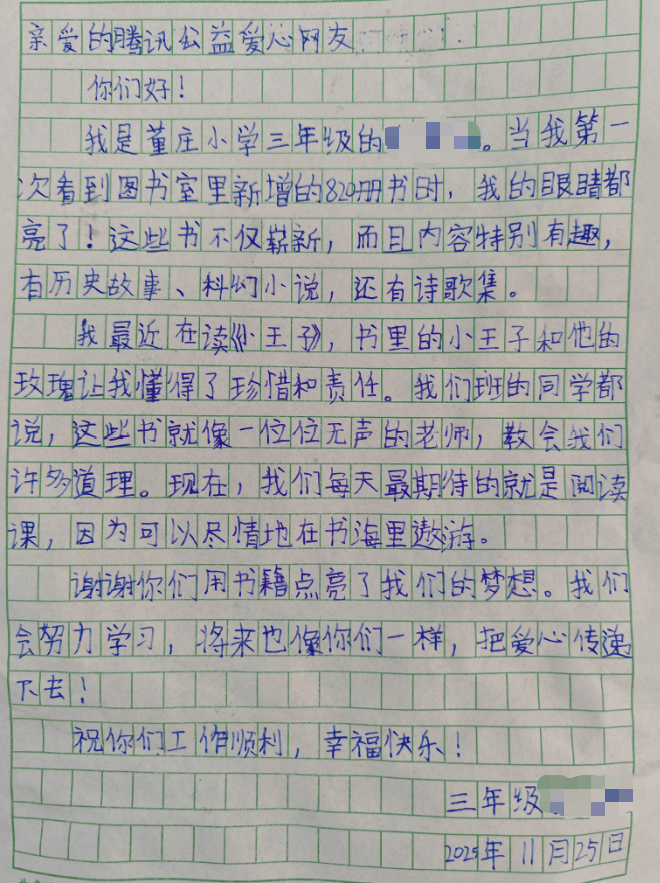 亲爱的腾讯公益爱心网友
你们好！
我是董庄小学三年级的。当我第一
次看到图书室里新增的820册书时，我的眼睛都
亮了！这些书不仅崭新，而且内容特别有趣，
有历史故事、科幻小说，还有诗歌集。
我最近在读《小王子》，书里的小王子和他的
玫瑰让我懂得了珍惜和责任。我们班的同学都
说，这些书就像一位位无声的老师，教会我们
许多道理。现在，我们每天最期待的就是阅读
课，因为可以尽情地在书海里遨游。
谢谢你们用书籍点亮了我们的梦想。我们
会努力学习，将来也像你们一样，把爱心传递
下去！
祝你们工作顺利，幸福快乐！
三年级
2025年11月25日